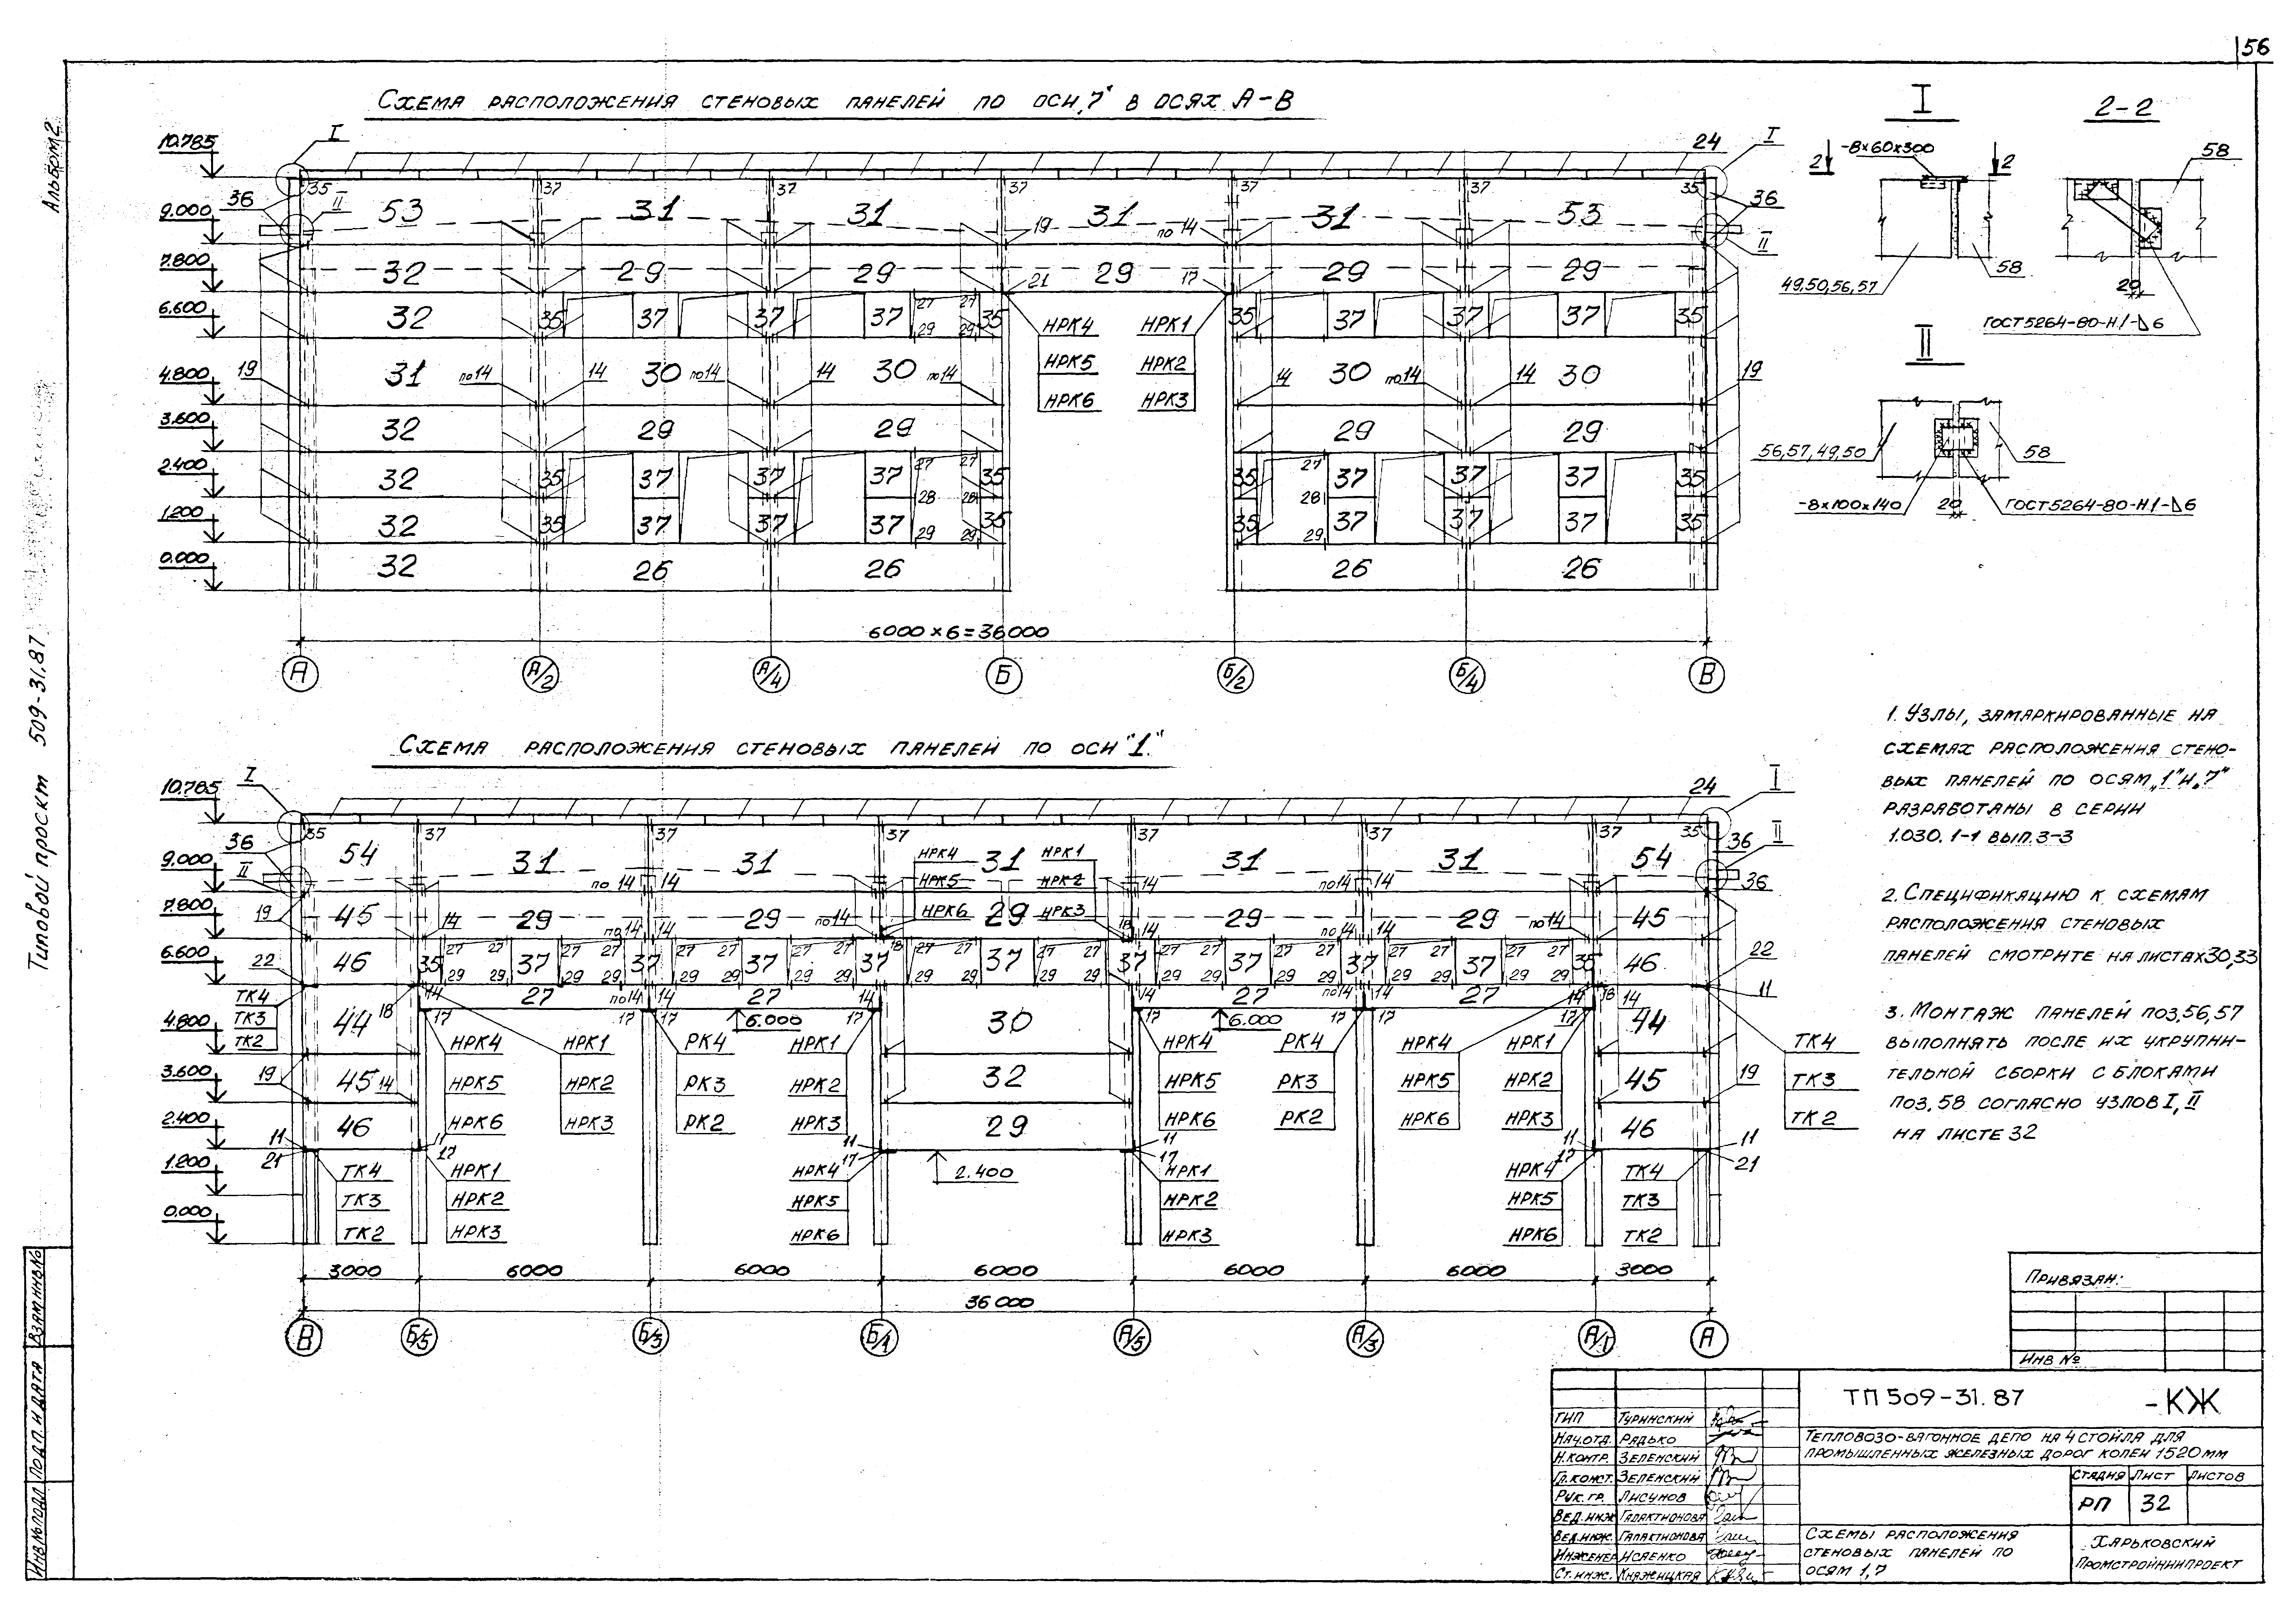 56
Альбом 2
Типовой проект 509-31.87
Схема расположения стеновых панелей по оси „7" в осях А-В
10.785
9.000
7.800
6.600
4.800
3.600
2.400
1.200
0.000
I
36
35
II
37
37
37
37
37
35
24
I
36
II
53
31
31
31
31
53
19
по 14
32
29
29
29
29
29
21
17
32
35
37
37
37
27
27
29
29
35
35
37
37
37
35
НРК4
НРК5
НРК6
НРК1
НРК2
НРК3
19
31
по 14
14
30
по 14
14
30
по 14
14
30
по 14
14
30
19
32
29
29
29
29
32
35
37
37
37
27
27
28
28
35
35
27
28
37
37
37
35
32
35
37
37
37
29
29
35
35
29
37
37
37
35
32
26
26
26
26
6000×6=36000
А
А/2
А/4
Б
Б/2
Б/4
В
I
-8×60×300
2
2
49,50,56,57
58
2-2
58
20
ГОСТ 5264-80-Н1-⊿6
II
56,57,49,50
58
-8×100×140
20
ГОСТ 5264-80-Н1-⊿6
Схема расположения стеновых панелей по оси "1"
10.785
9.000
7.800
6.600
4.800
3.600
2.400
1.200
0.000
I
36
35
II
37
37
37
37
37
37
35
24
I
II
36
36
54
31
31
31
31
31
54
по 14
14
НРК4
НРК5
НРК6
НРК1
НРК2
НРК3
19
45
14
29
29
29
29
29
45
22
46
35
37
37
37
37
37
37
37
37
37
35
46
22
11
27
27
27
27
6.000
6.000
ТК4
ТК3
ТК2
44
18
30
44
ТК4
ТК3
ТК2
НРК4
НРК5
НРК6
НРК1
НРК2
НРК3
РК4
РК3
РК2
НРК1
НРК2
НРК3
НРК4
НРК5
НРК6
РК4
РК3
РК2
НРК4
НРК5
НРК6
НРК1
НРК2
НРК3
19
45
14
32
45
19
46
29
46
11
21
11
17
11
17
2.400
11
17
11
17
11
21
ТК4
ТК3
ТК2
НРК1
НРК2
НРК3
НРК4
НРК5
НРК6
НРК1
НРК2
НРК3
НРК4
НРК5
НРК6
ТК4
ТК3
ТК2
3000
6000
6000
6000
6000
6000
3000
36 000
В
Б/5
Б/3
Б/1
А/5
А/3
А/1
А
1. Узлы, замаркированные на
схемах расположения стено-
вых панелей по осям „1" и „7"
разработаны в серии
1.030.1-1 вып.3-3
2. Спецификацию к схемам
расположения стеновых
панелей смотрите на листах 30,33
3. Монтаж панелей поз.56,57
выполнять после их укрупни-
тельной сборки с блоками
поз.58 согласно узлов I, II
на листе 32
Привязан:
Инв №
ТП 509-31.87 -КЖ
Тепловозо-вагонное депо на 4 стойла для
промышленных железных дорог колеи 1520 мм
ГИП Туринский
Нач.отд. Рядько
Н.контр. Зеленский
Гл.конст. Зеленский
Рук.гр. Лисунов
Вед.инж Галактионова
Вед.инж. Галактионова
Инженер Исаенко
Ст.инж. Княжицкая
Стадия Лист Листов
РП 32
Схемы расположения
стеновых панелей по
осям 1,7
Харьковский
Промстройниипроект
Инв.№ подл Подп. и дата Взам инв.№